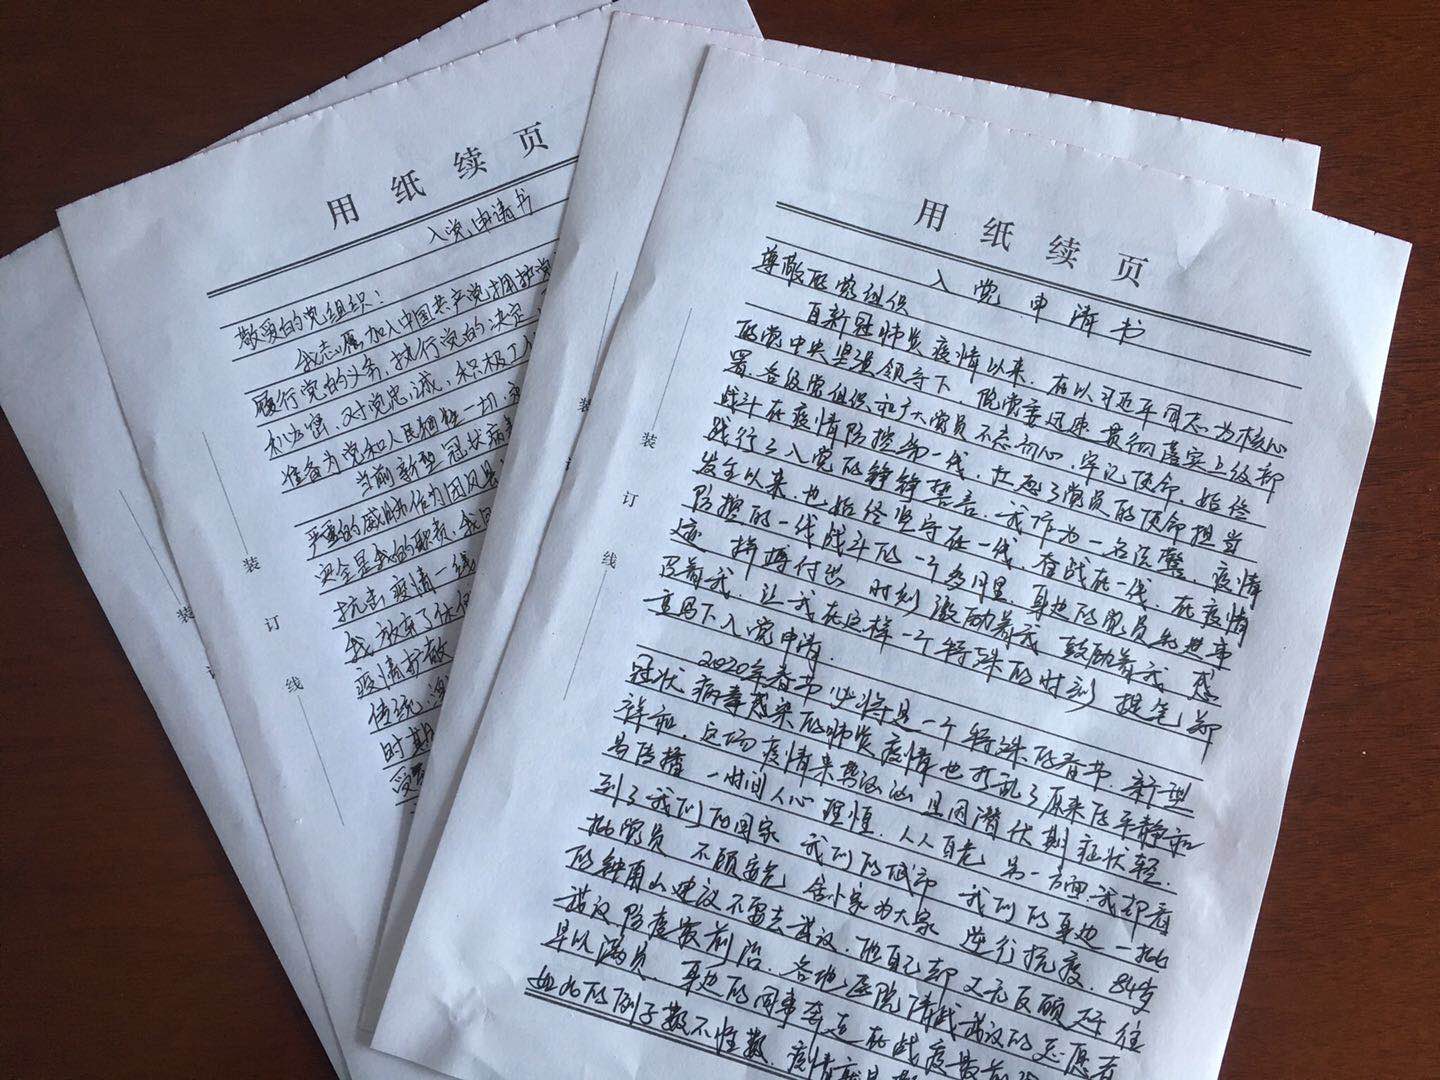 用纸续页
入党申请书
敬爱的党组织：
我志愿加入中国共产党拥护党
履行党的义务，执行党的决定
积极工
准备为党和人民牺牲一切，
当前新型冠状病毒
严重的威胁作为团风县
安全是我的职责，我
抗击疫情一线
我放弃了休
疫情扩散
传统，
时期
受
装
订
线
装
用纸续页
入党申请书
尊敬的党组织
自新冠肺炎疫情以来，在以习近平同志为核心
的党中央坚强领导下，院党委迅速贯彻落实上级部
署，各级党组织和广大党员不忘初心，牢记使命，始终
战斗在疫情防控第一线，扛起了党员的使命担当
践行了入党的铮铮誓言，我作为一名医警，疫情
发生以来，也始终坚守在一线，奋战在一线，在疫情
防控的一线战斗的一个多月里，身边的党员先进事
迹 拼搏付出 时刻激励着我 鼓励着我 感
召着我，让我在这样一个特殊的时刻 提笔郑
重写下入党申请.
2020年春节必将是一个特殊的春节，新型
冠状病毒感染的肺炎疫情也打乱了原来的平静和
祥和，这场疫情来势汹汹且因潜伏期症状轻，
易传播 一时间人心惶惶，人人自危，另一方面，我却看
到了我们的国家 我们的城市 我们的身边 一批
批党员 不顾安危 舍小家为大家 逆行抗疫，84岁
的钟南山建议不要去武汉，他自己却义无反顾赶往
武汉防疫最前沿，各地医院请战武汉的志愿者
早以满员，身边的同事奋战在战疫最前沿
如此的例子数不胜数，疫情就是
装
订
线